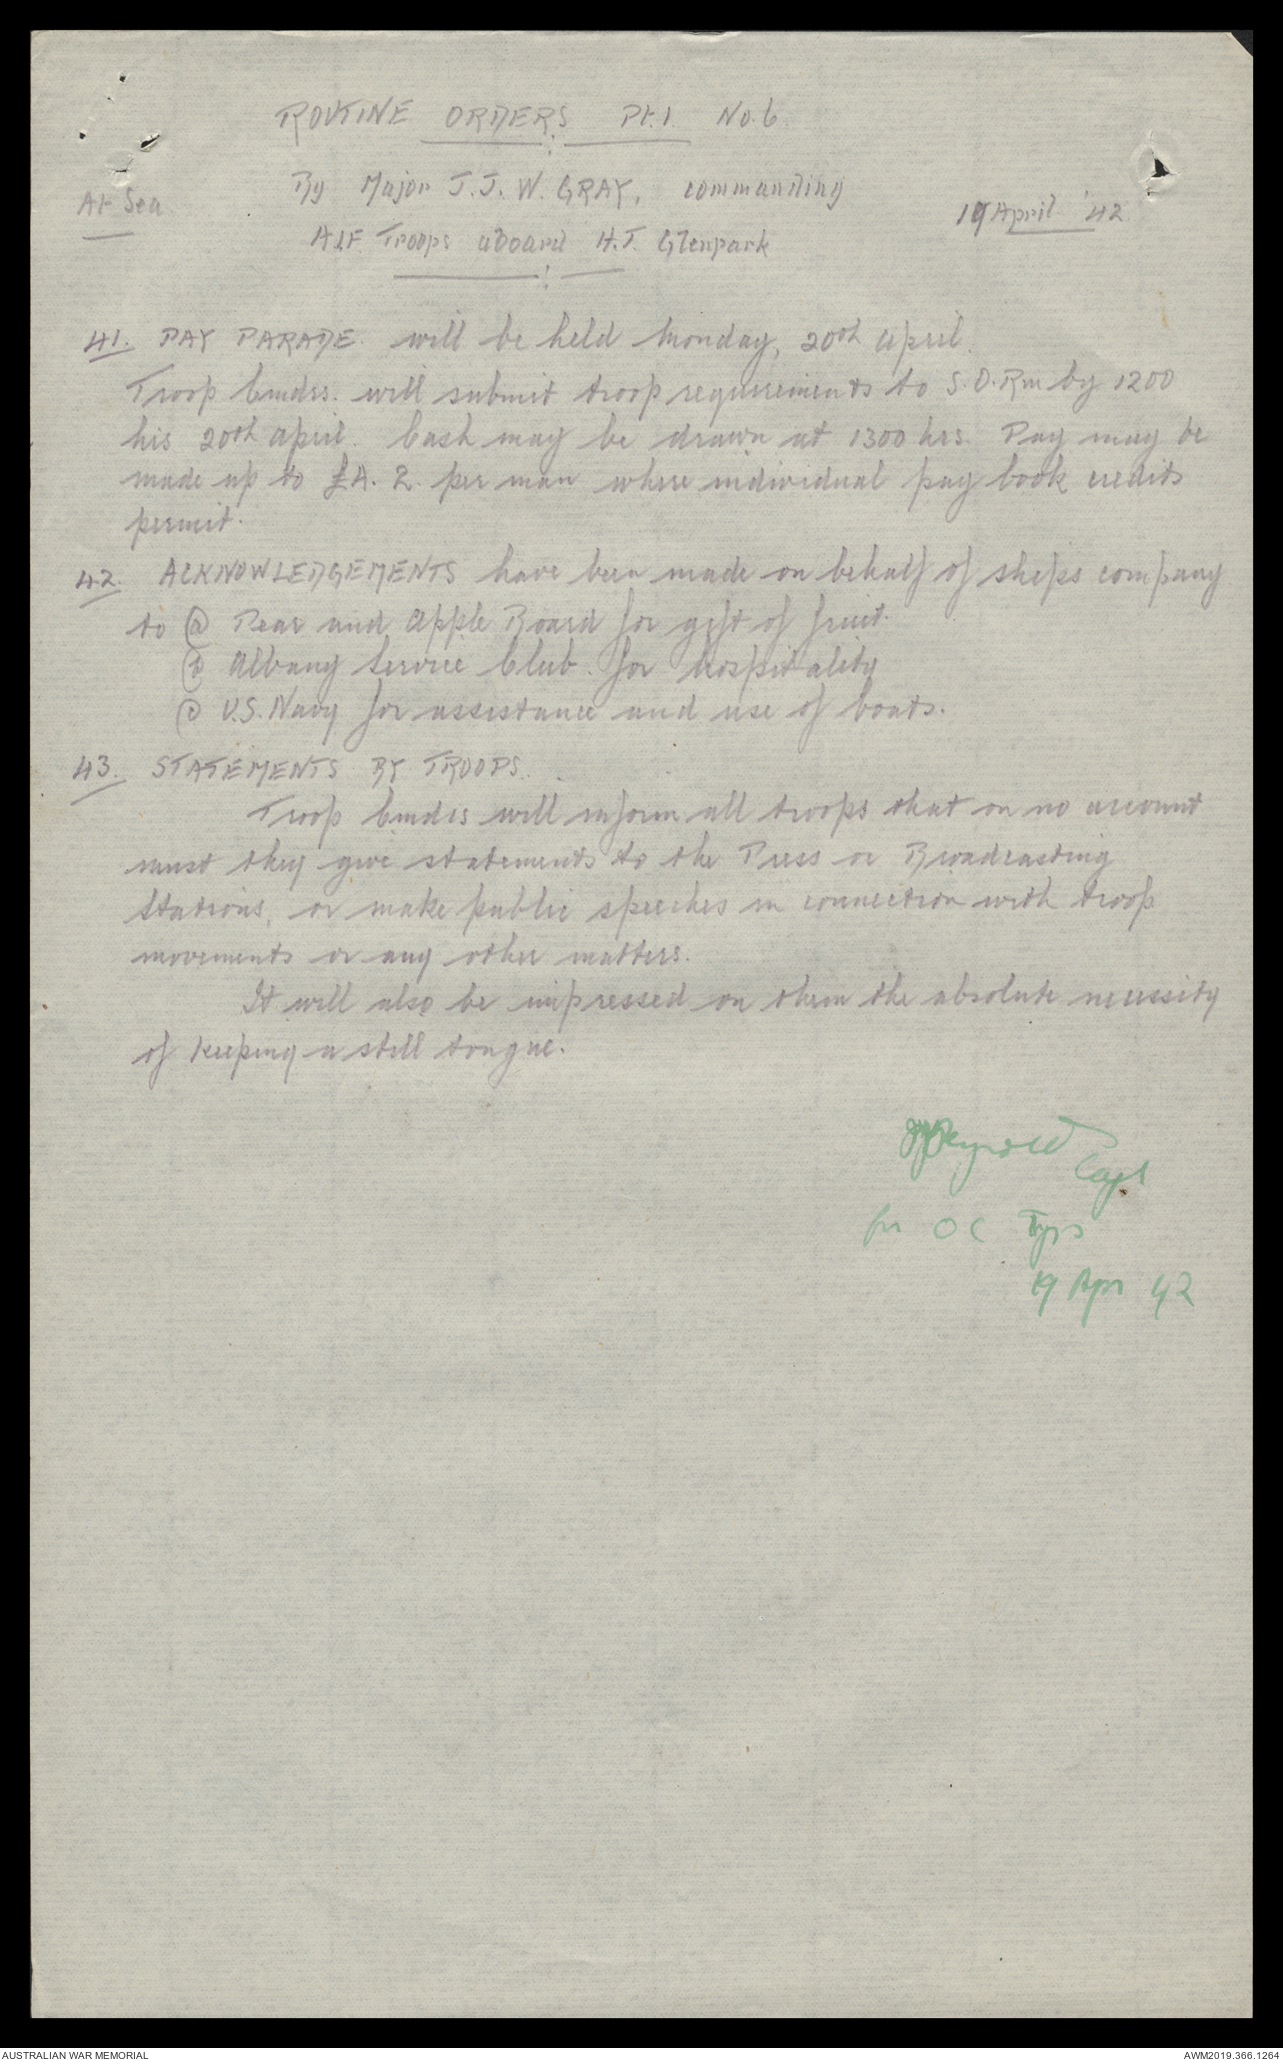 ROUTINE ORDERS Pt.1. No.6.
By Major J.J.W. GRAY, commanding
At Sea
19 April '42.
AIF. Troops aboard H.T. Glenpark
41. PAY PARADE. will be held Monday, 20th April.
Troop Cmdrs. will submit troop requirements to S.O.Rm by 1200
hrs 20th April. Cash may be drawn at 1300 hrs. Pay may be
made up to £A. 2. per man where individual pay book credits
permit.
42. ACKNOWLEDGEMENTS have been made on behalf of ships company
to (a) Pear and Apple Board for gift of fruit.
(b) Albany Service Club. for hospitality
(c) U.S. Navy for assistance and use of boats.
43. STATEMENTS BY TROOPS.
Troop Cmdrs will inform all troops that on no account
must they give statements to the Press or Broadcasting
Stations, or make public speeches in connection with troop
movements or any other matters.
It will also be impressed on them the absolute necessity
of keeping a still tongue.
Reynold Capt
for OC Tps
19 Apr 42
AUSTRALIAN WAR MEMORIAL
AWM2019.366.1264